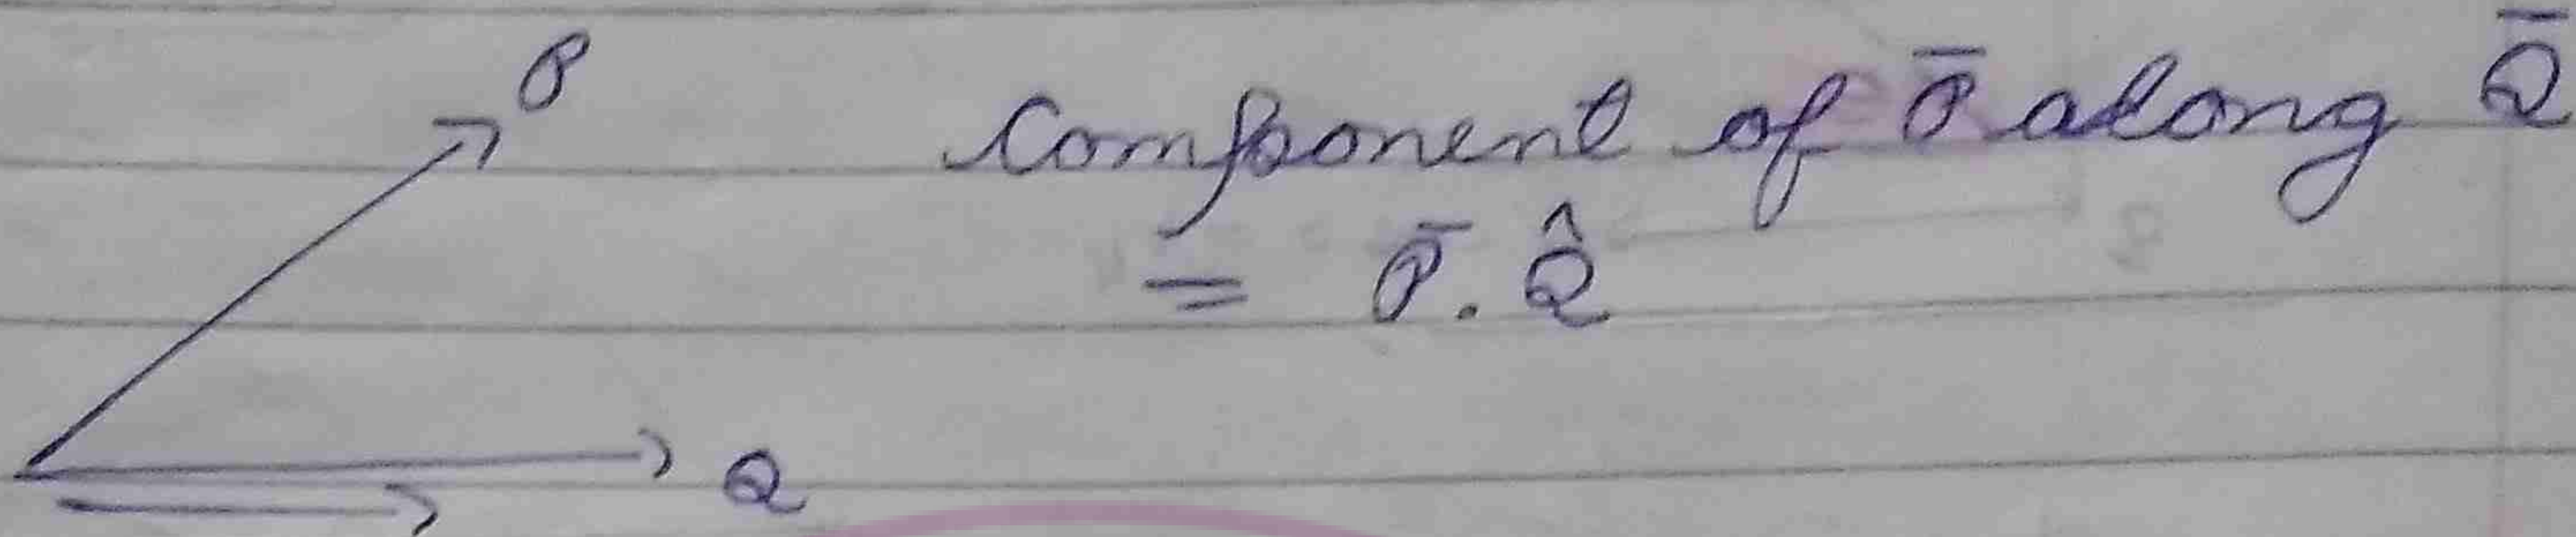 P
Component of P̄ along Q̄
= P̄ . Q̂
Q